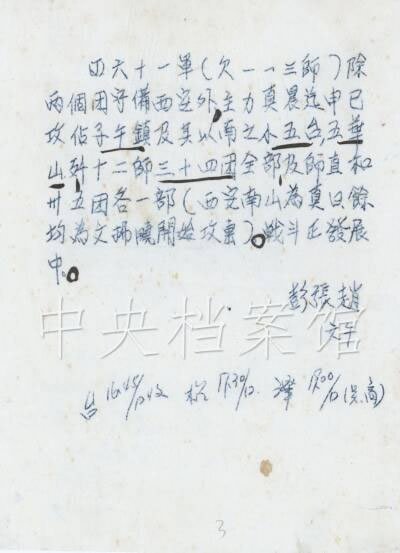 四六十一軍（欠一一三師）除
兩個团守備西安外主力真晨迄申已
攻佔子午鎮及其以南之小五台,五華
山,殲十二師三十四团全部及師直和
卅五团各一部（西完南山為真日餘
均為文拂曉開始攻击）战斗正發展
中。
彭張趙
文
中央档案馆
台16.45/12收 17.30/12 譯17.00/12
3